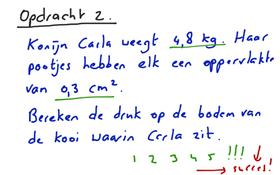 Opdracht 2.
Konijn Carla weegt 4,8 kg. Haar
pootjes hebben elk een oppervlakte
van 0,3 cm².
Bereken de druk op de bodem van
de kooi waarin Carla zit.
1 2 3 4 5 !!! ↓
→ succes!